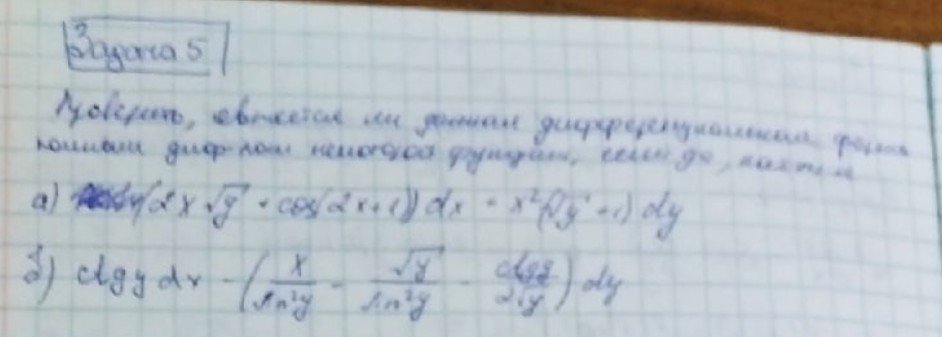 Задача 5
Проверить, является ли данная дифференциальная форма
полным диф-лом некоторой функции, если да, найти
а) (2x√y + cos(2x+1)) dx - x²(√y + 1) dy
б) ctg y dx - (x/sin²y - √y/sin²y - ctg y/2√y) dy